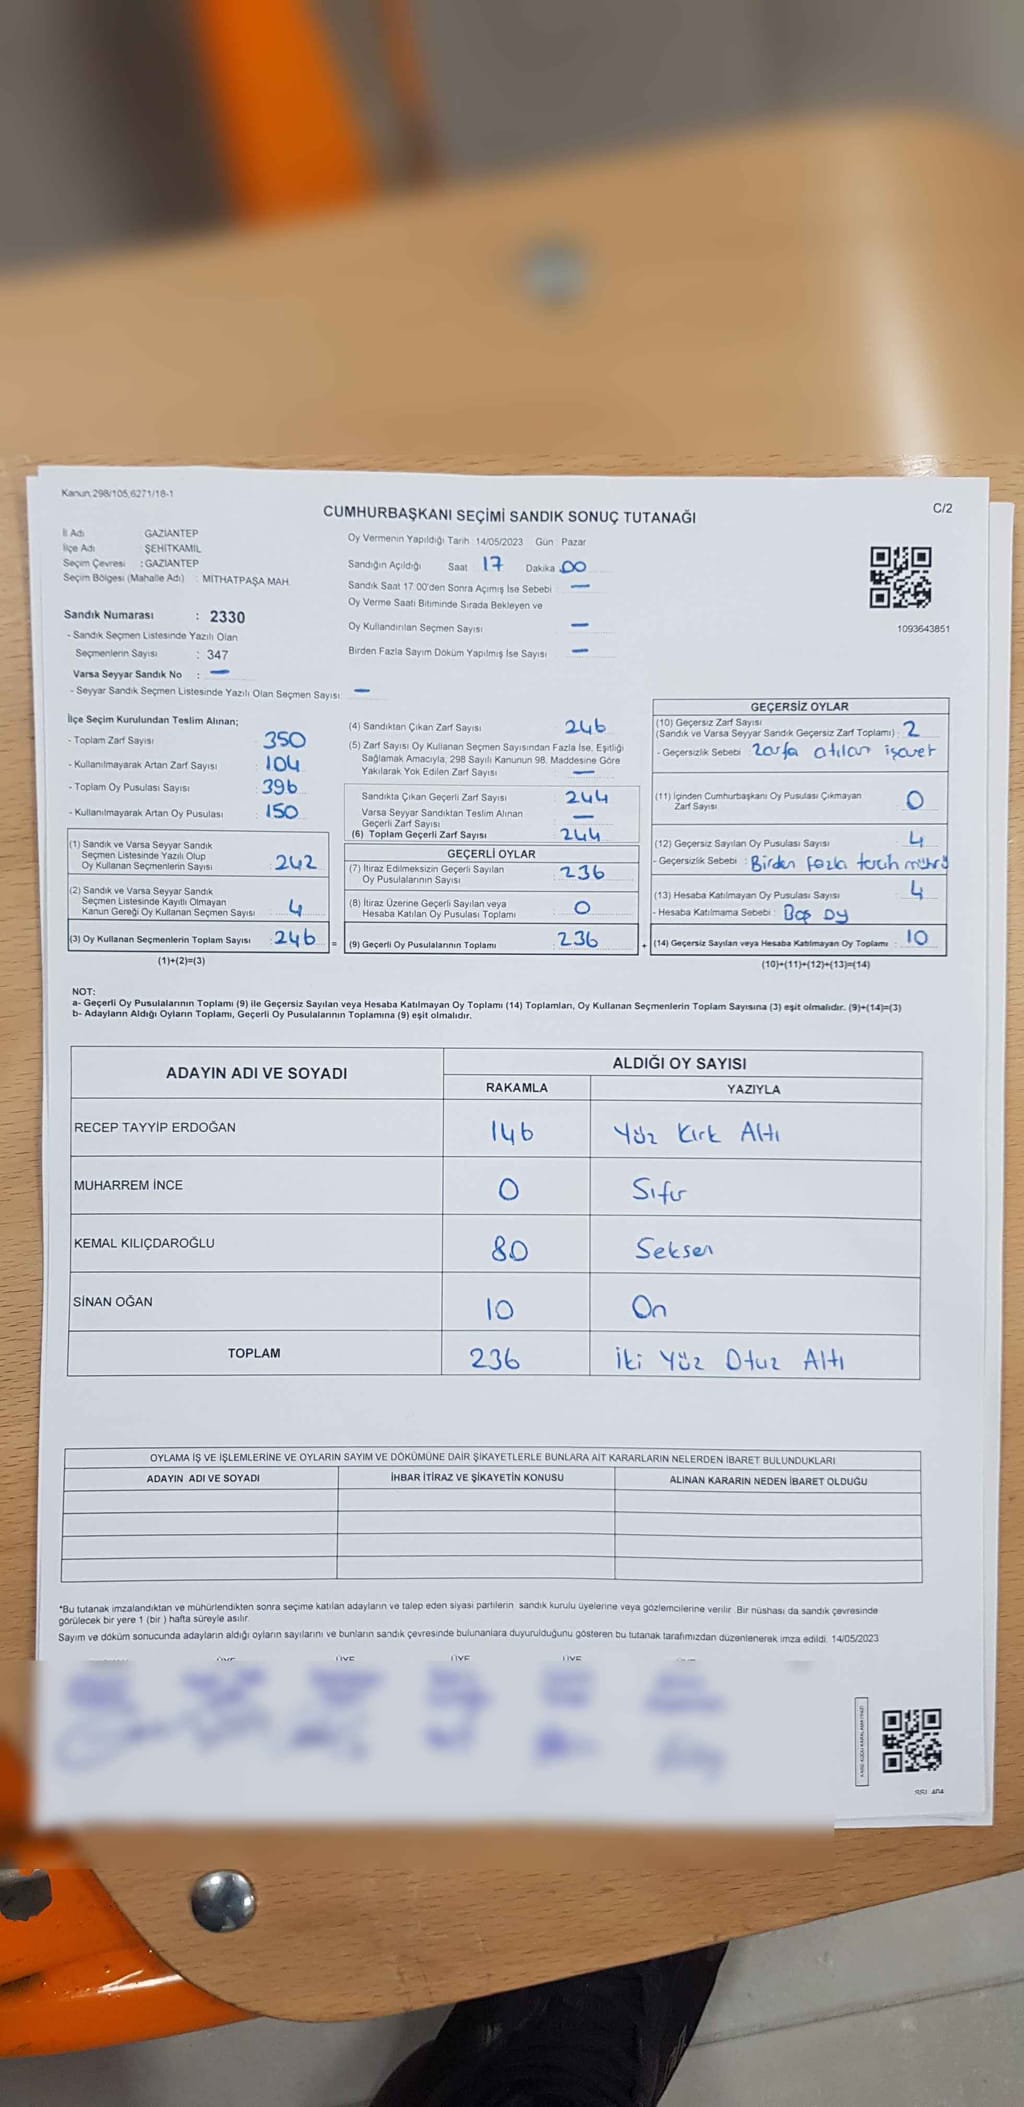 Kanun 298/105,6271/18-1
C/2
CUMHURBAŞKANI SEÇİMİ SANDIK SONUÇ TUTANAĞI
İl Adı GAZİANTEP
İlçe Adı ŞEHİTKAMİL
Seçim Çevresi : GAZİANTEP
Seçim Bölgesi (Mahalle Adı) : MİTHATPAŞA MAH.
Sandık Numarası : 2330
- Sandık Seçmen Listesinde Yazılı Olan
Seçmenlerin Sayısı : 347
Varsa Seyyar Sandık No : —
- Seyyar Sandık Seçmen Listesinde Yazılı Olan Seçmen Sayısı : —
Oy Vermenin Yapıldığı Tarih 14/05/2023 Gün Pazar
Sandığın Açıldığı Saat 17 Dakika 00
Sandık Saat 17 00'den Sonra Açımış İse Sebebi —
Oy Verme Saati Bitiminde Sırada Bekleyen ve
Oy Kullandırılan Seçmen Sayısı —
Birden Fazla Sayım Döküm Yapılmış İse Sayısı —
1093643851
İlçe Seçim Kurulundan Teslim Alınan;
- Toplam Zarf Sayısı 350
- Kullanılmayarak Artan Zarf Sayısı 104
- Toplam Oy Pusulası Sayısı 396
- Kullanılmayarak Artan Oy Pusulası 150
(1) Sandık ve Varsa Seyyar Sandık
Seçmen Listesinde Yazılı Olup
Oy Kullanan Seçmenlerin Sayısı : 242
(2) Sandık ve Varsa Seyyar Sandık
Seçmen Listesinde Kayıtlı Olmayan
Kanun Gereği Oy Kullanan Seçmen Sayısı : 4
(3) Oy Kullanan Seçmenlerin Toplam Sayısı : 246 =
(1)+(2)=(3)
(4) Sandıktan Çıkan Zarf Sayısı 246
(5) Zarf Sayısı Oy Kullanan Seçmen Sayısından Fazla İse, Eşitliği
Sağlamak Amacıyla, 298 Sayılı Kanunun 98. Maddesine Göre
Yakılarak Yok Edilen Zarf Sayısı —
Sandıkta Çıkan Geçerli Zarf Sayısı 244
Varsa Seyyar Sandıktan Teslim Alınan
Geçerli Zarf Sayısı —
(6) Toplam Geçerli Zarf Sayısı 244
GEÇERLİ OYLAR
(7) İtiraz Edilmeksizin Geçerli Sayılan
Oy Pusulalarının Sayısı : 236
(8) İtiraz Üzerine Geçerli Sayılan veya
Hesaba Katılan Oy Pusulası Toplamı : 0
(9) Geçerli Oy Pusulalarının Toplamı : 236 +
GEÇERSİZ OYLAR
(10) Geçersiz Zarf Sayısı
(Sandık ve Varsa Seyyar Sandık Geçersiz Zarf Toplamı) : 2
- Geçersizlik Sebebi : Zarfa atılan işaret
(11) İçinden Cumhurbaşkanı Oy Pusulası Çıkmayan
Zarf Sayısı 0
(12) Geçersiz Sayılan Oy Pusulası Sayısı 4
- Geçersizlik Sebebi : Birden fazla tercih mührü
(13) Hesaba Katılmayan Oy Pusulası Sayısı 4
- Hesaba Katılmama Sebebi : Boş Oy
(14) Geçersiz Sayılan veya Hesaba Katılmayan Oy Toplamı : 10
(10)+(11)+(12)+(13)=(14)
NOT:
a- Geçerli Oy Pusulalarının Toplamı (9) ile Geçersiz Sayılan veya Hesaba Katılmayan Oy Toplamı (14) Toplamları, Oy Kullanan Seçmenlerin Toplam Sayısına (3) eşit olmalıdır. (9)+(14)=(3)
b- Adayların Aldığı Oyların Toplamı, Geçerli Oy Pusulalarının Toplamına (9) eşit olmalıdır.
ADAYIN ADI VE SOYADI ALDIĞI OY SAYISI
RAKAMLA YAZIYLA
RECEP TAYYİP ERDOĞAN 146 Yüz Kırk Altı
MUHARREM İNCE 0 Sıfır
KEMAL KILIÇDAROĞLU 80 Seksen
SİNAN OĞAN 10 On
TOPLAM 236 İki Yüz Otuz Altı
OYLAMA İŞ VE İŞLEMLERİNE VE OYLARIN SAYIM VE DÖKÜMÜNE DAİR ŞİKAYETLERLE BUNLARA AİT KARARLARIN NELERDEN İBARET BULUNDUKLARI
ADAYIN ADI VE SOYADI İHBAR İTİRAZ VE ŞİKAYETİN KONUSU ALINAN KARARIN NEDEN İBARET OLDUĞU
*Bu tutanak imzalandıktan ve mühürlendikten sonra seçime katılan adayların ve talep eden siyasi partilerin sandık kurulu üyelerine veya gözlemcilerine verilir. Bir nüshası da sandık çevresinde
görülecek bir yere 1 (bir ) hafta süreyle asılır.
Sayım ve döküm sonucunda adayların aldığı oyların sayılarını ve bunların sandık çevresinde bulunanlara duyurulduğunu gösteren bu tutanak tarafımızdan düzenlenerek imza edildi. 14/05/2023
ÜYE ÜYE ÜYE ÜYE